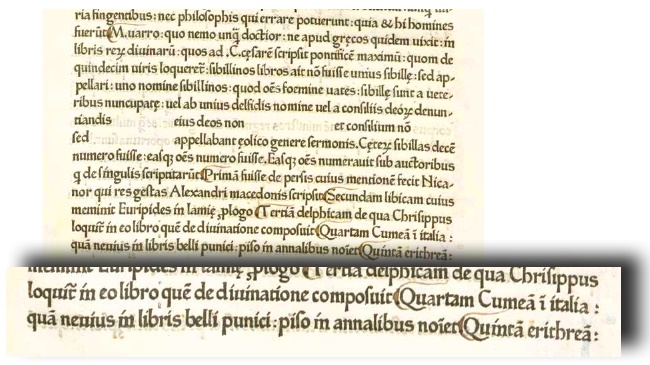 ria fingentibus: nec philosophis qui errare potuerunt: quia & hi homines
fuerūt M. uarro: quo nemo unq̄ doctior: ne apud gręcos quidem uixit: in
libris reꝝ diuinarū: quos ad .C. cęsarē scripsit pontificē maximū: quom de
quindecim uiris loqueret̄: sibillinos libros ait nō fuisse unius sibillę: sed ap-
pellari: uno nomine sibillinos: quod oēs foemine uates: sibillę sunt a uete-
ribus nuncupatę: uel ab unius delfidis nomine uel a consiliis deoꝝ denun-
tiandis eius deos non et consilium nō
sed appellabant ęolico genere sermonis. Cęteꝝ sibillas decē
numero fuisse: easq; oēs numero fuisse. Easq; oēs numerauit sub auctoribus
q de singulis scriptitarūt Primā fuisse de persis cuius mentionē fecit Nica-
nor qui res gestas Alexandri macedonis scripsit Secundam libicam cuius
meminit Euripides in lamię ꝓlogo Tertiā delphicam de qua Chrisippus
loquit̄ in eo libro quē de diuinatione composuit Quartam Cumeā ī italia:
quā neuius in libris belli punici: piso in annalibus noīet Quintā erithreā:
meminit Euripides in lamię ꝓlogo Tertiā delphicam de qua Chrisippus
loquit̄ in eo libro quē de diuinatione composuit Quartam Cumeā ī italia:
quā neuius in libris belli punici: piso in annalibus noīet Quintā erithreā: